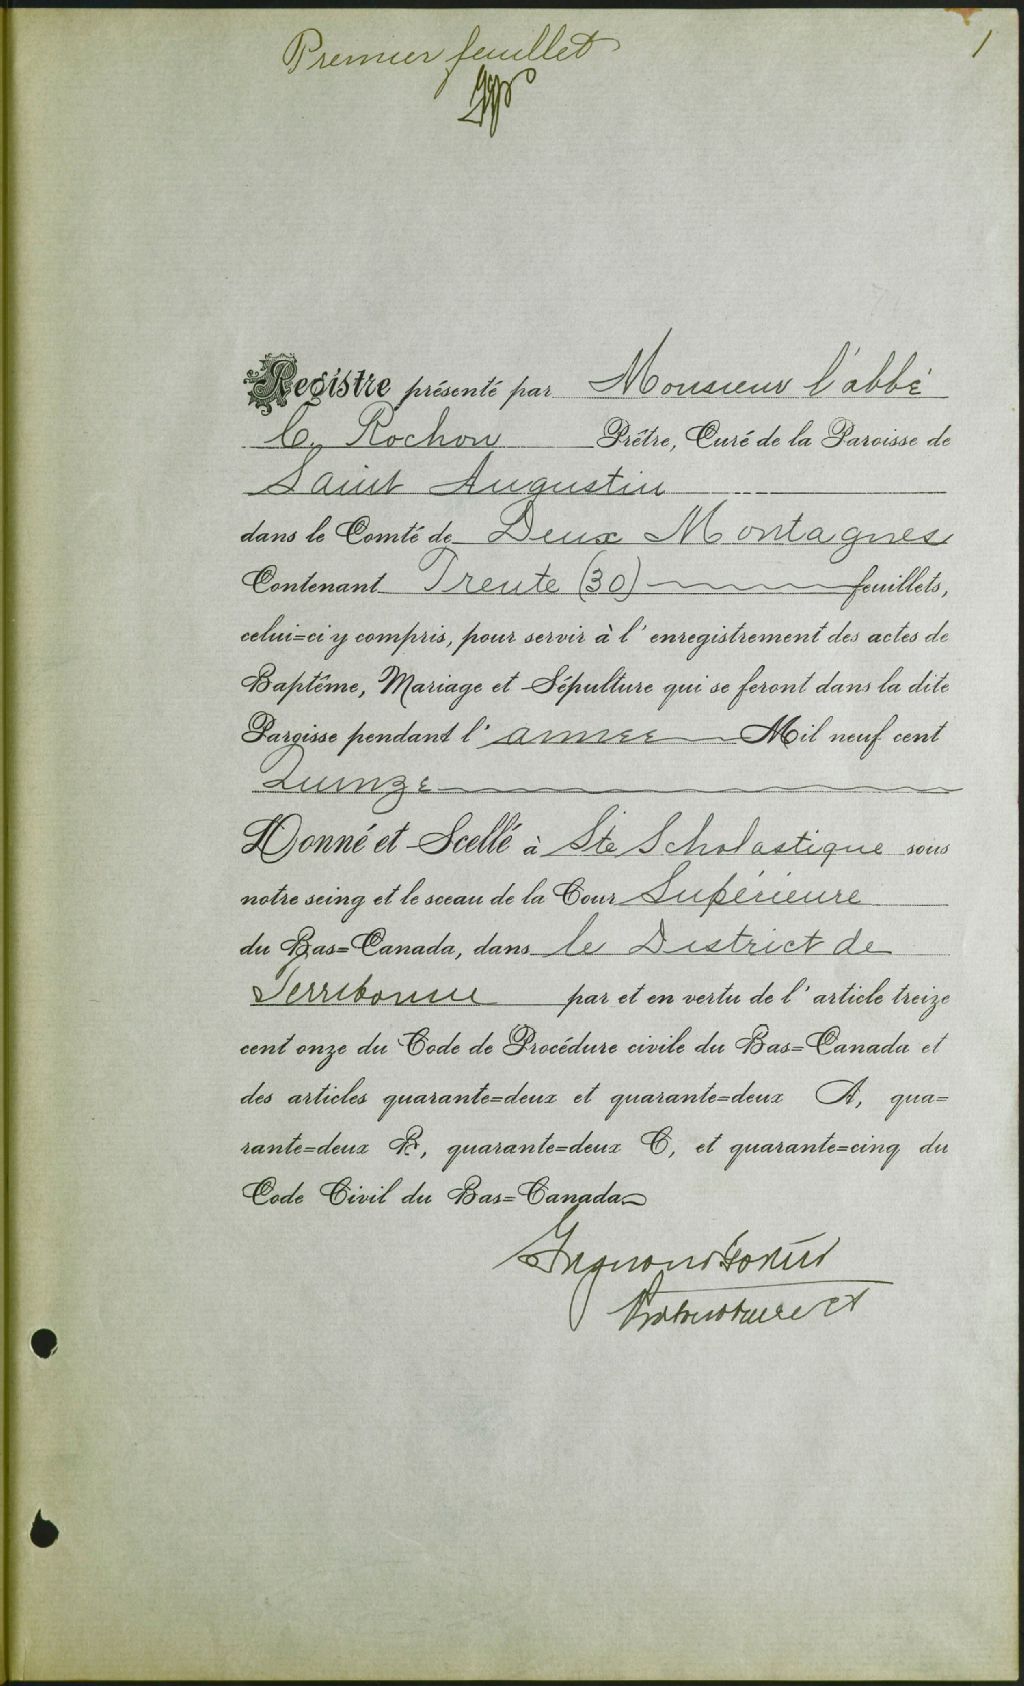 Premier feuillet
1
Registre présenté par Monsieur l'abbé
C. Rochon Prêtre, Curé de la Paroisse de
Saint Augustin
dans le Comté de Deux Montagnes
Contenant Trente (30) feuillets,
celui=ci y compris, pour servir à l'enregistrement des actes de
Baptême, Mariage et Sépulture qui se feront dans la dite
Paroisse pendant l'année Mil neuf cent
Quinze
Donné et Scellé à Ste Scholastique sous
notre seing et le sceau de la Cour Supérieure
du Bas=Canada, dans le District de
Terrebonne par et en vertu de l'article treize
cent onze du Code de Procédure civile du Bas=Canada et
des articles quarante=deux et quarante=deux A, qua=
rante=deux B, quarante=deux C, et quarante=cinq du
Code Civil du Bas=Canada